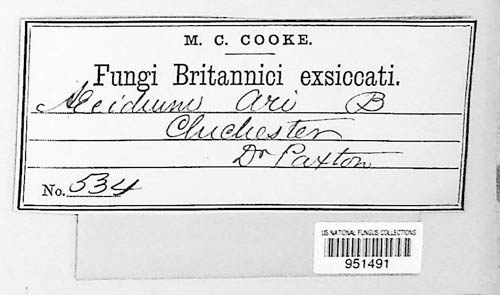 M. C. COOKE.
Fungi Britannici exsiccati.
Aecidium Ari B
Chichester
Dr Paxton
No. 534
US NATIONAL FUNGUS COLLECTIONS
951491